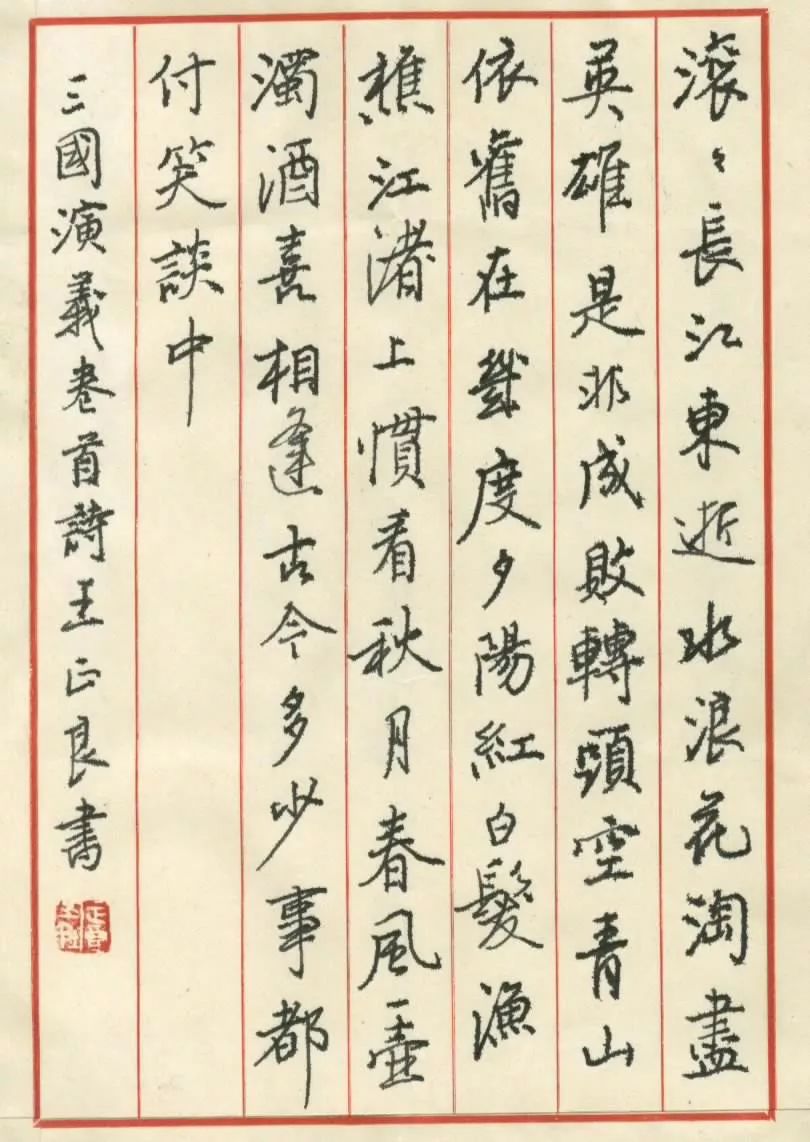 滚〻長江東逝水浪花淘盡
英雄是非成敗轉頭空青山
依舊在幾度夕陽紅白髮漁
樵江渚上慣看秋月春風一壺
濁酒喜相逢古今多少事都
付笑談中
三國演義卷首詩王正良書